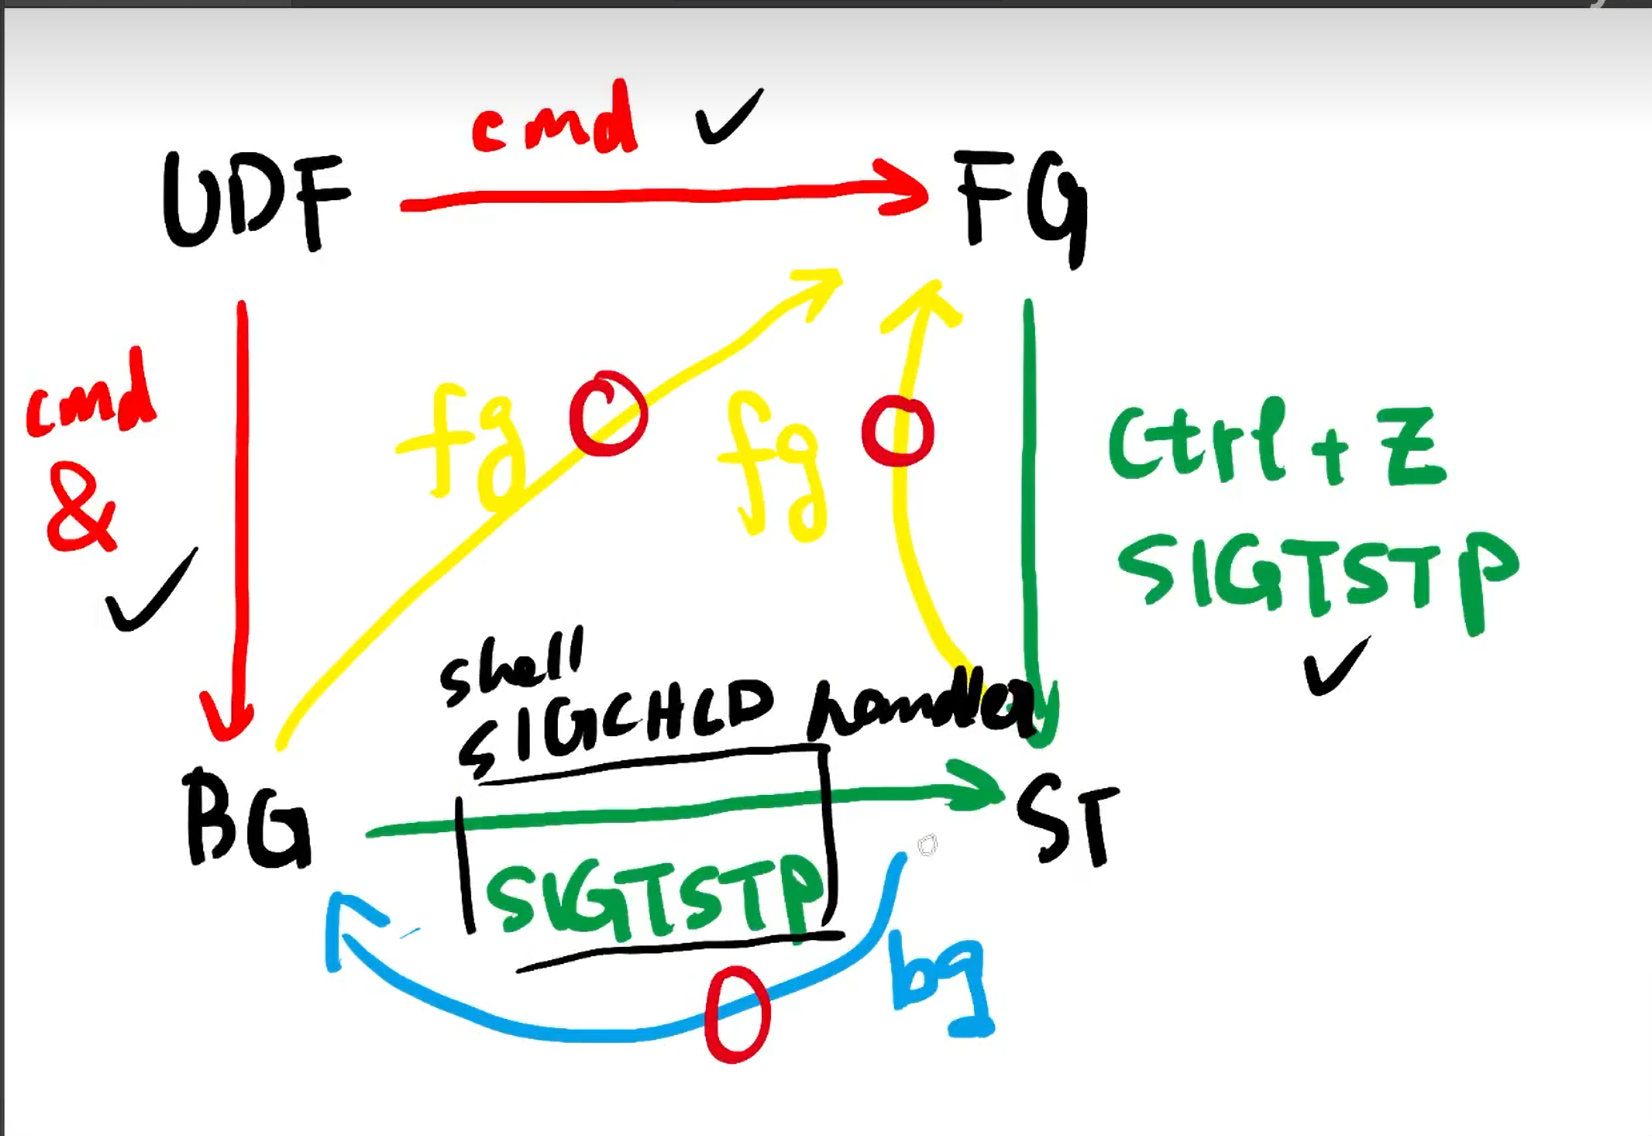 cmd ✓
UDF
FG
cmd
&
✓
fg
fg
Ctrl + Z
SIGTSTP
✓
shell
SIGCHLD handler
BG
ST
SIGTSTP
bg